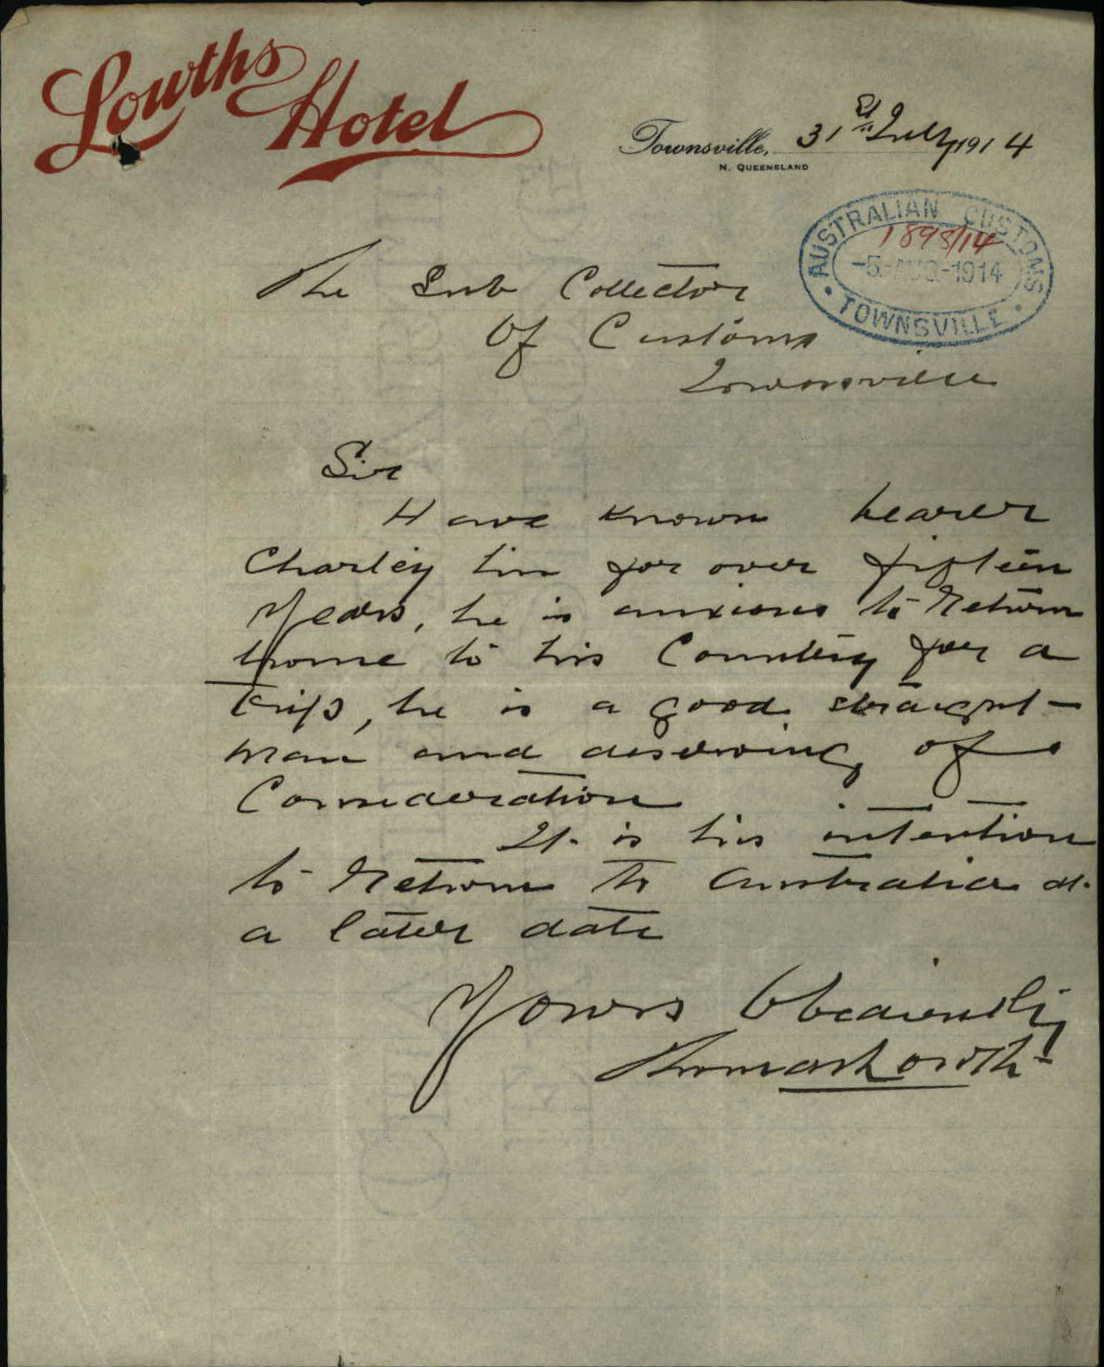 Lowths Hotel
Townsville, 31st July 1914
N. QUEENSLAND
AUSTRALIAN CUSTOMS
1898/14
-5 AUG 1914
TOWNSVILLE
The Sub Collector
Of Customs
Townsville
Sir
Have known bearer
Charley hin for over fifteen
Years, he is anxious to Return
home to his Country for a
trip, he is a good straight
man and deserving of
Consideration
It is his intention
to Return to Australia at
a later date
Yours Obediently
Thomas Lowth